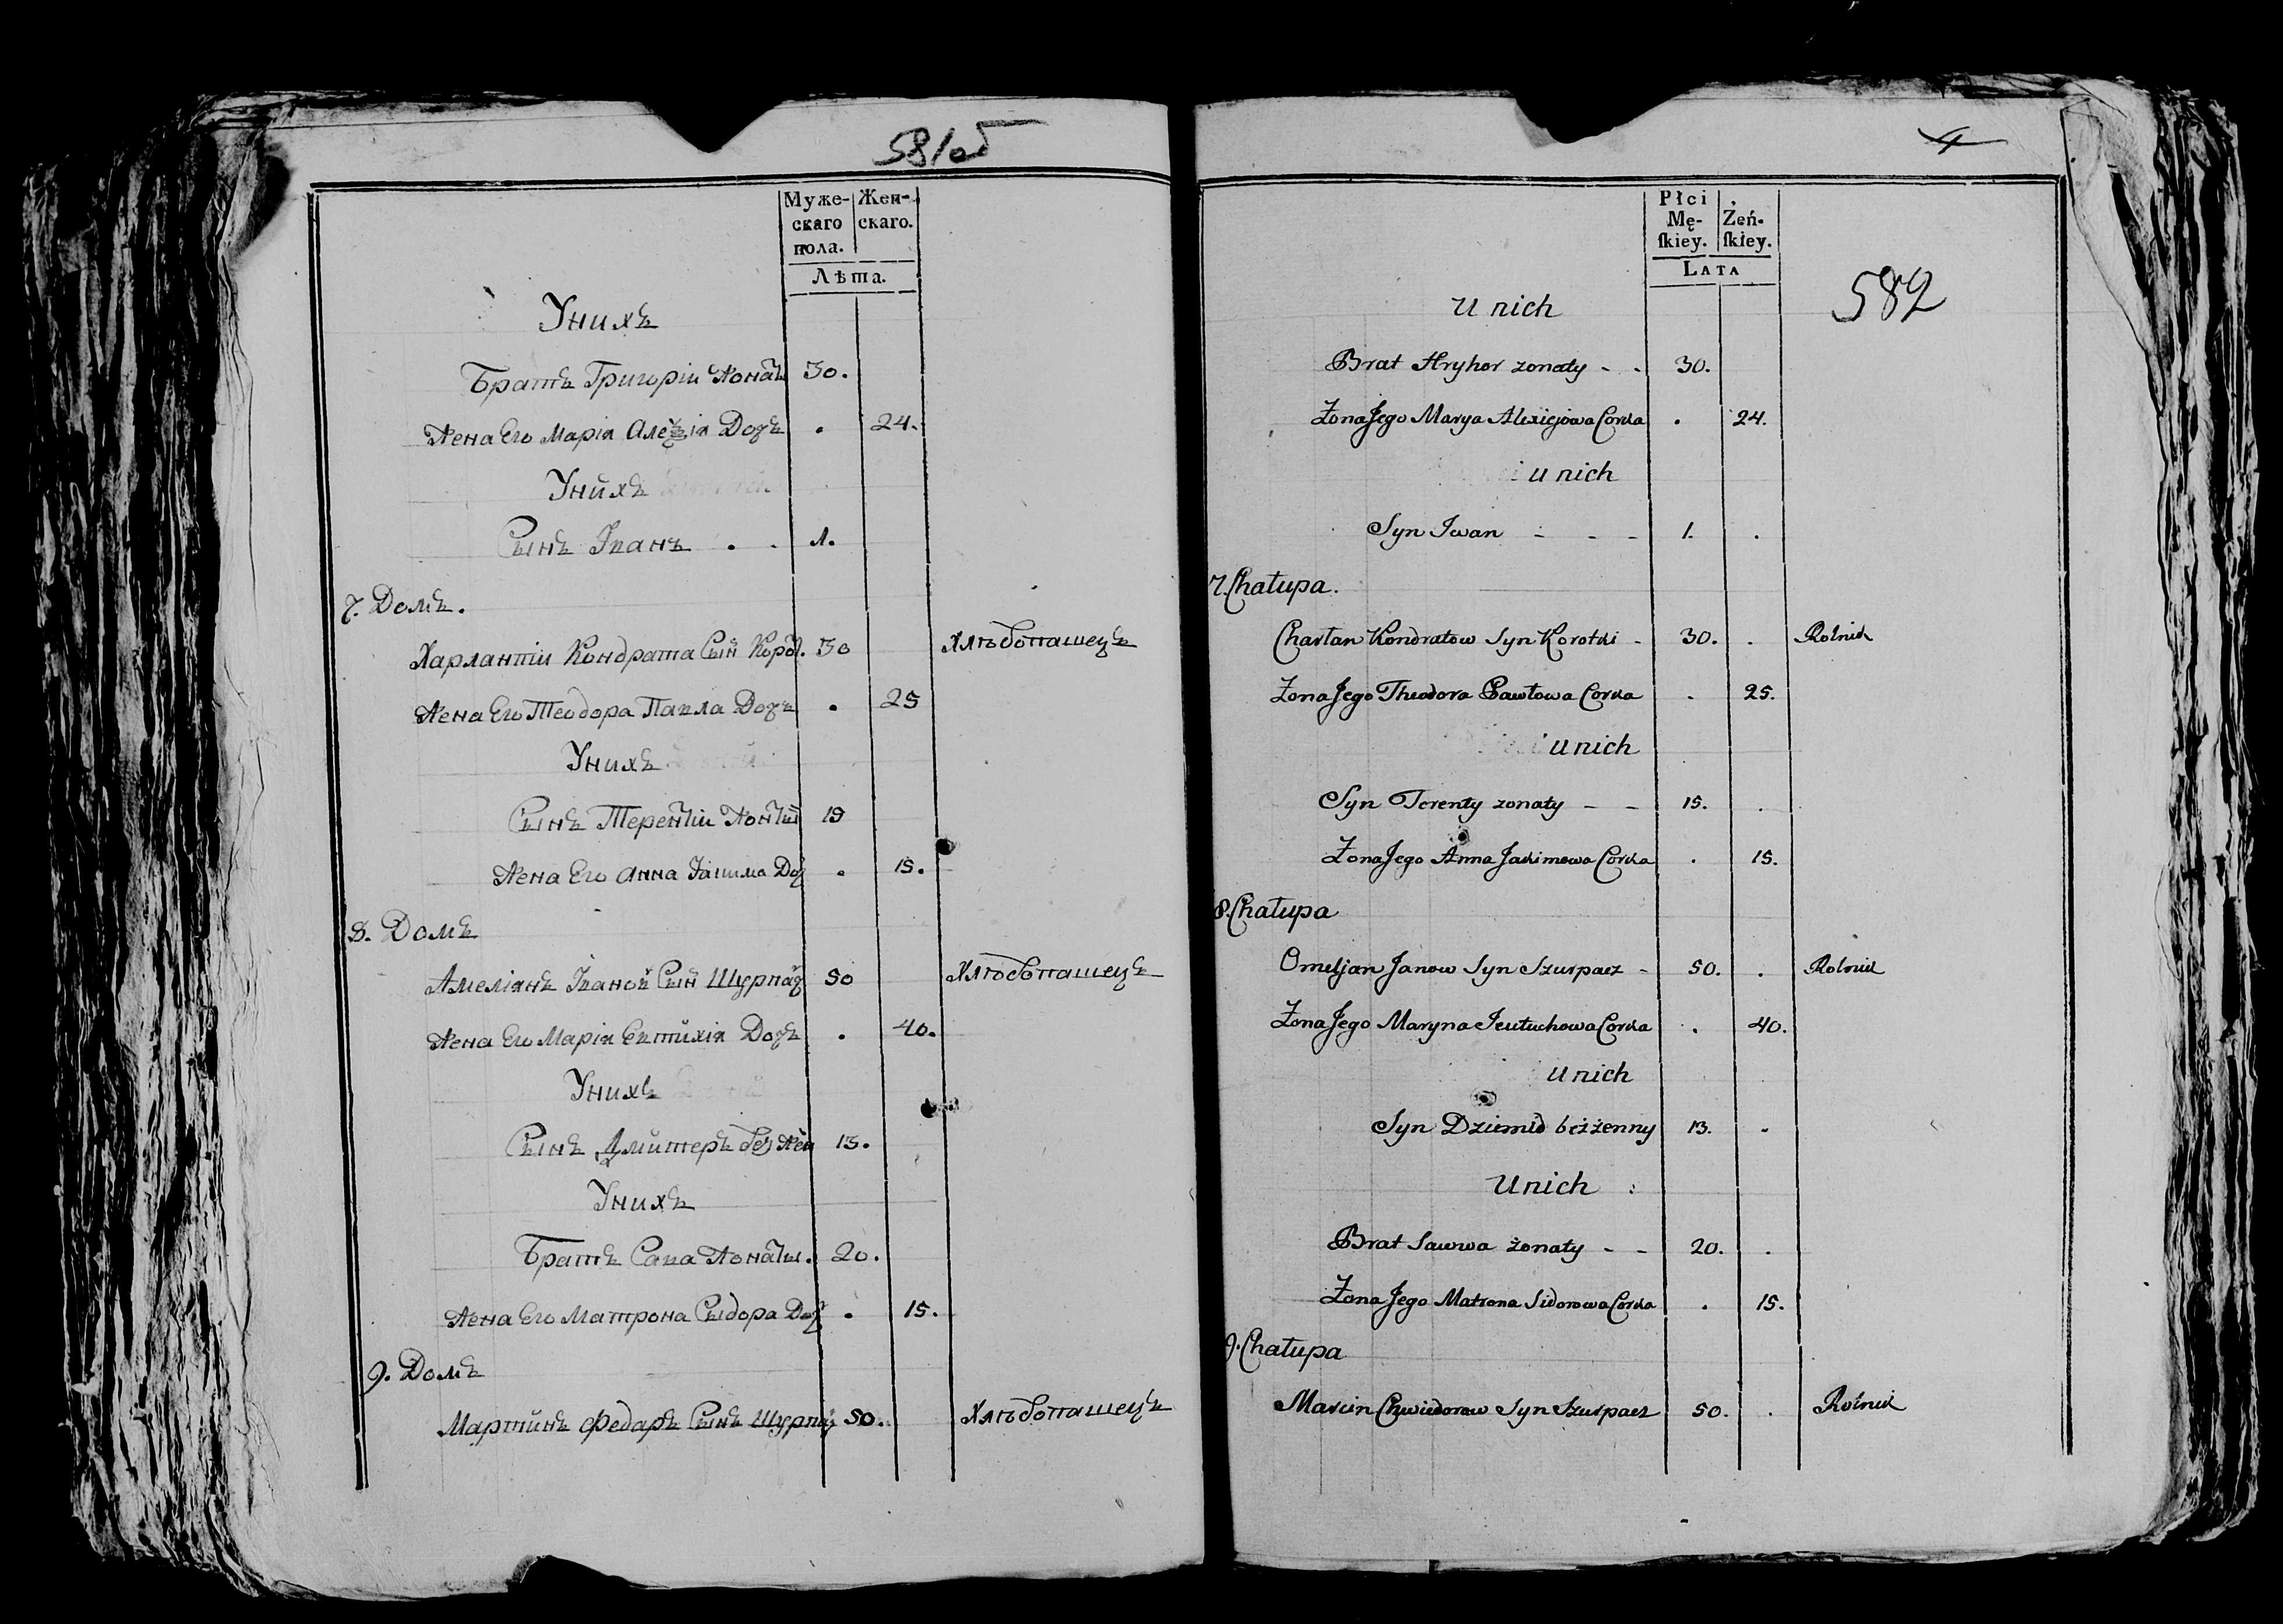 581об
Муже-
скаго
пола.
Жен-
скаго.
Лѣта.
Унихъ
Братъ Григоріи Жонатъ 30.
Жена Его Марія Алеѯія Дочъ . 24.
Унихъ
Сынъ Іванъ . . 1.
7. Домъ.
Харлантіи Кондрата Сын Корот. 30 Хлѣбопашецъ
Жена Его Теодора Павла Дочъ . 25
Унихъ
Сынъ Терентіи 15
Жена Его Анна Іакима Доч . 15.
8. Домъ
Амеліянъ Іванов Сын Шурпач 50 Хлѣбопашецъ
Жена Его Марія Евтихія Дочъ . 40.
Унихъ
Сынъ Дмитеръ без жен 13.
Унихъ
Братъ Сава Жонаты. 20.
Жена Его Матрона Сыдора Доч . 15.
9. Домъ
Мартинъ Федаръ Сынъ Шурпач 50. Хлѣбопашецъ
4
Płci
Mę-
ſkiey.
Żeń-
ſkiey.
LATA
582
U nich
Brat Hryhor zonaty - - 30.
Żona Jego Marya Alexiejowa Corka . 24.
U nich
Syn Iwan - - - 1. .
7. Chałupa.
Charłan Kondratow Syn Korotki - 30. . Rolnik
Żona Jego Theodora Pawłowa Corka . 25.
U nich
Syn Terenty zonaty - - 15. .
Żona Jego Anna Jakimowa Corka . 15.
8. Chałupa
Omeljan Janow Syn Szurpacz - 50. . Rolnik
Żona Jego Maryna Jeutuchowa Corka . 40.
U nich
Syn Dziemid beżżenny 13. .
U nich :
Brat Sawwa żonaty - - 20. .
Żona Jego Matrona Sidorowa Corka . 15.
9. Chałupa
Marcin Chwiedorow Syn Szurpacz 50. . Rolnik